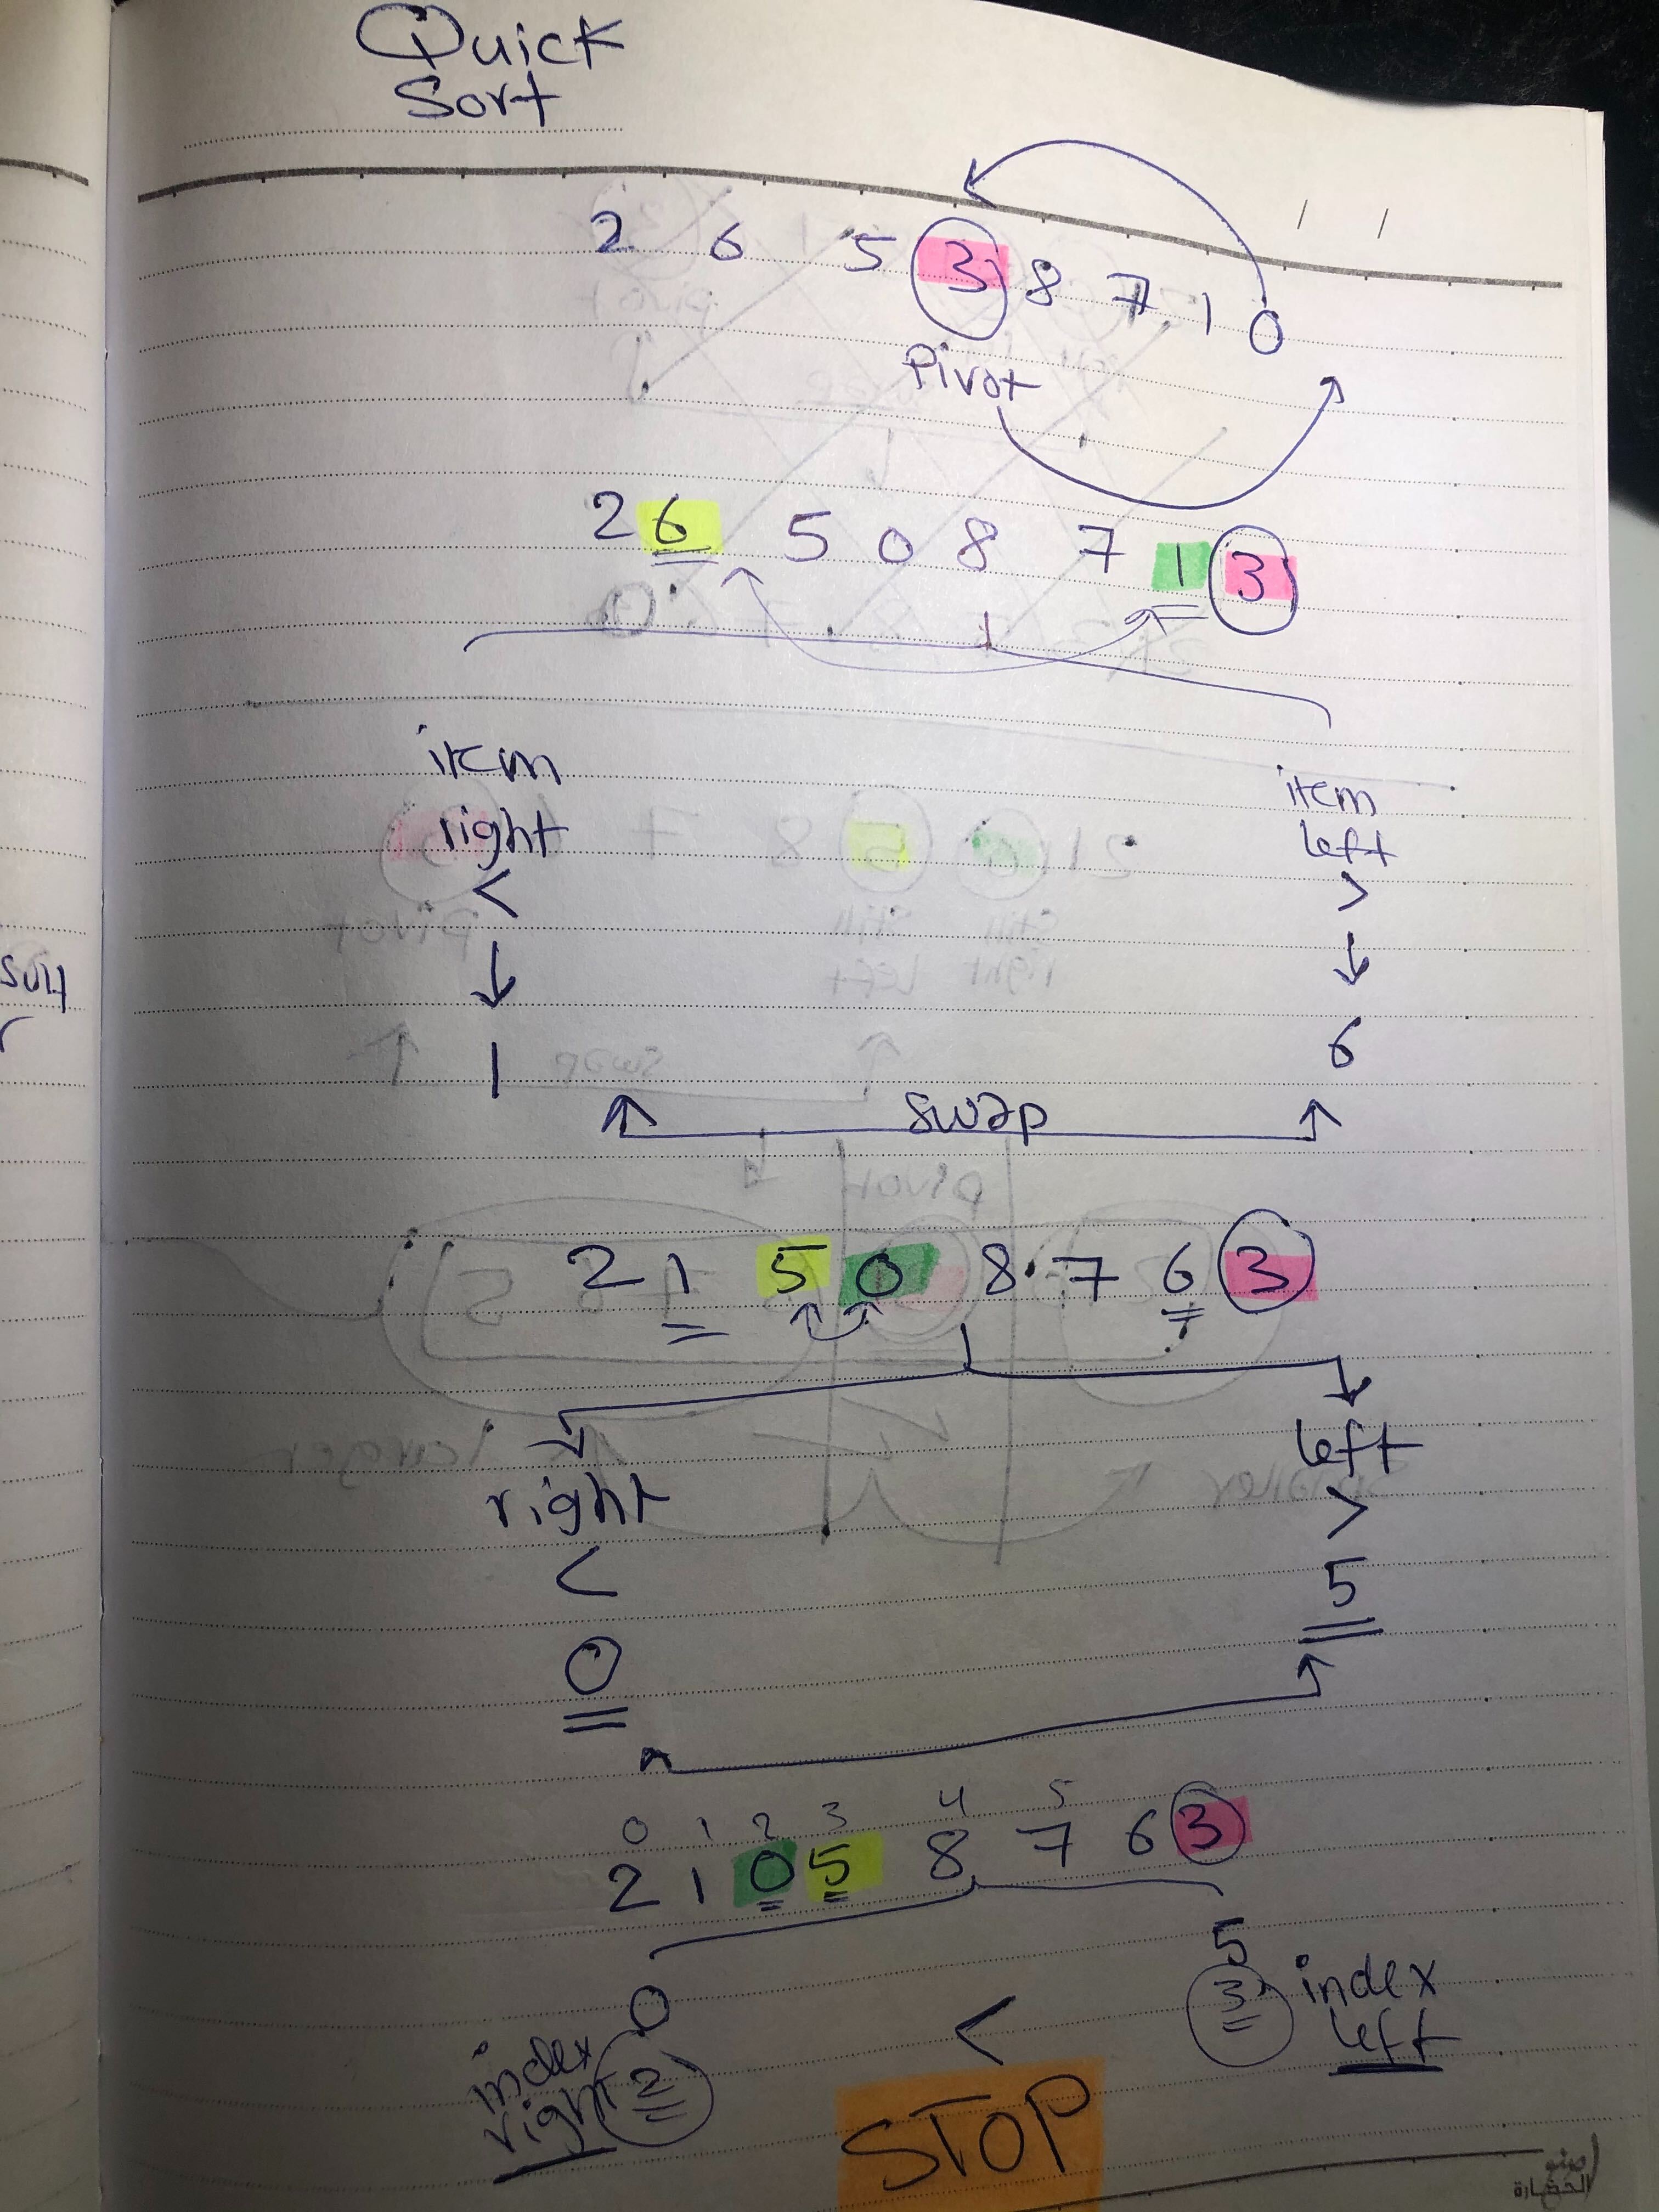 Quick
Sort
2 6 5 3 8 7 1 0
Pivot
2 6 5 0 8 7 1 3
item right < item left >
1 6
swap
2 1 5 0 8 7 6 3
right < left >
0 5
0 1 2 3 4 5
2 1 0 5 8 7 6 3
0 5
index right 2 < 3 index left
STOP
صنو
الحضارة